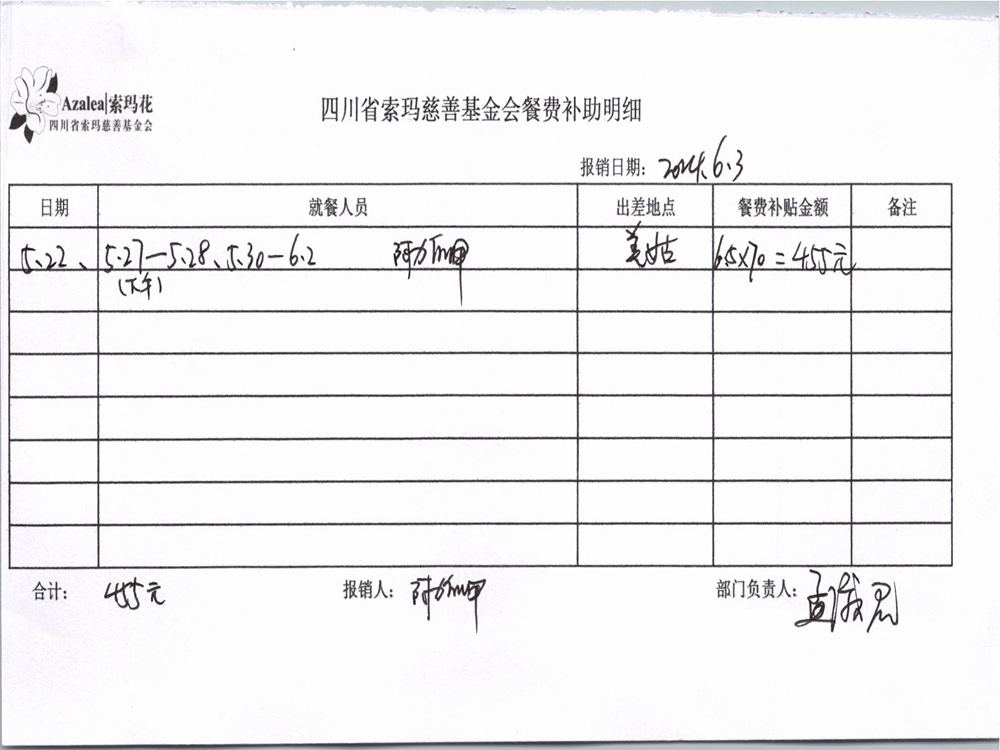 Azalea|索玛花
四川省索玛慈善基金会
四川省索玛慈善基金会餐费补助明细
报销日期: 2024.6.3
日期 就餐人员 出差地点 餐费补贴金额 备注
5.22、 5.27—5.28、5.30—6.2 美姑 6.5×70=455元
合计: 455元 报销人: 部门负责人: